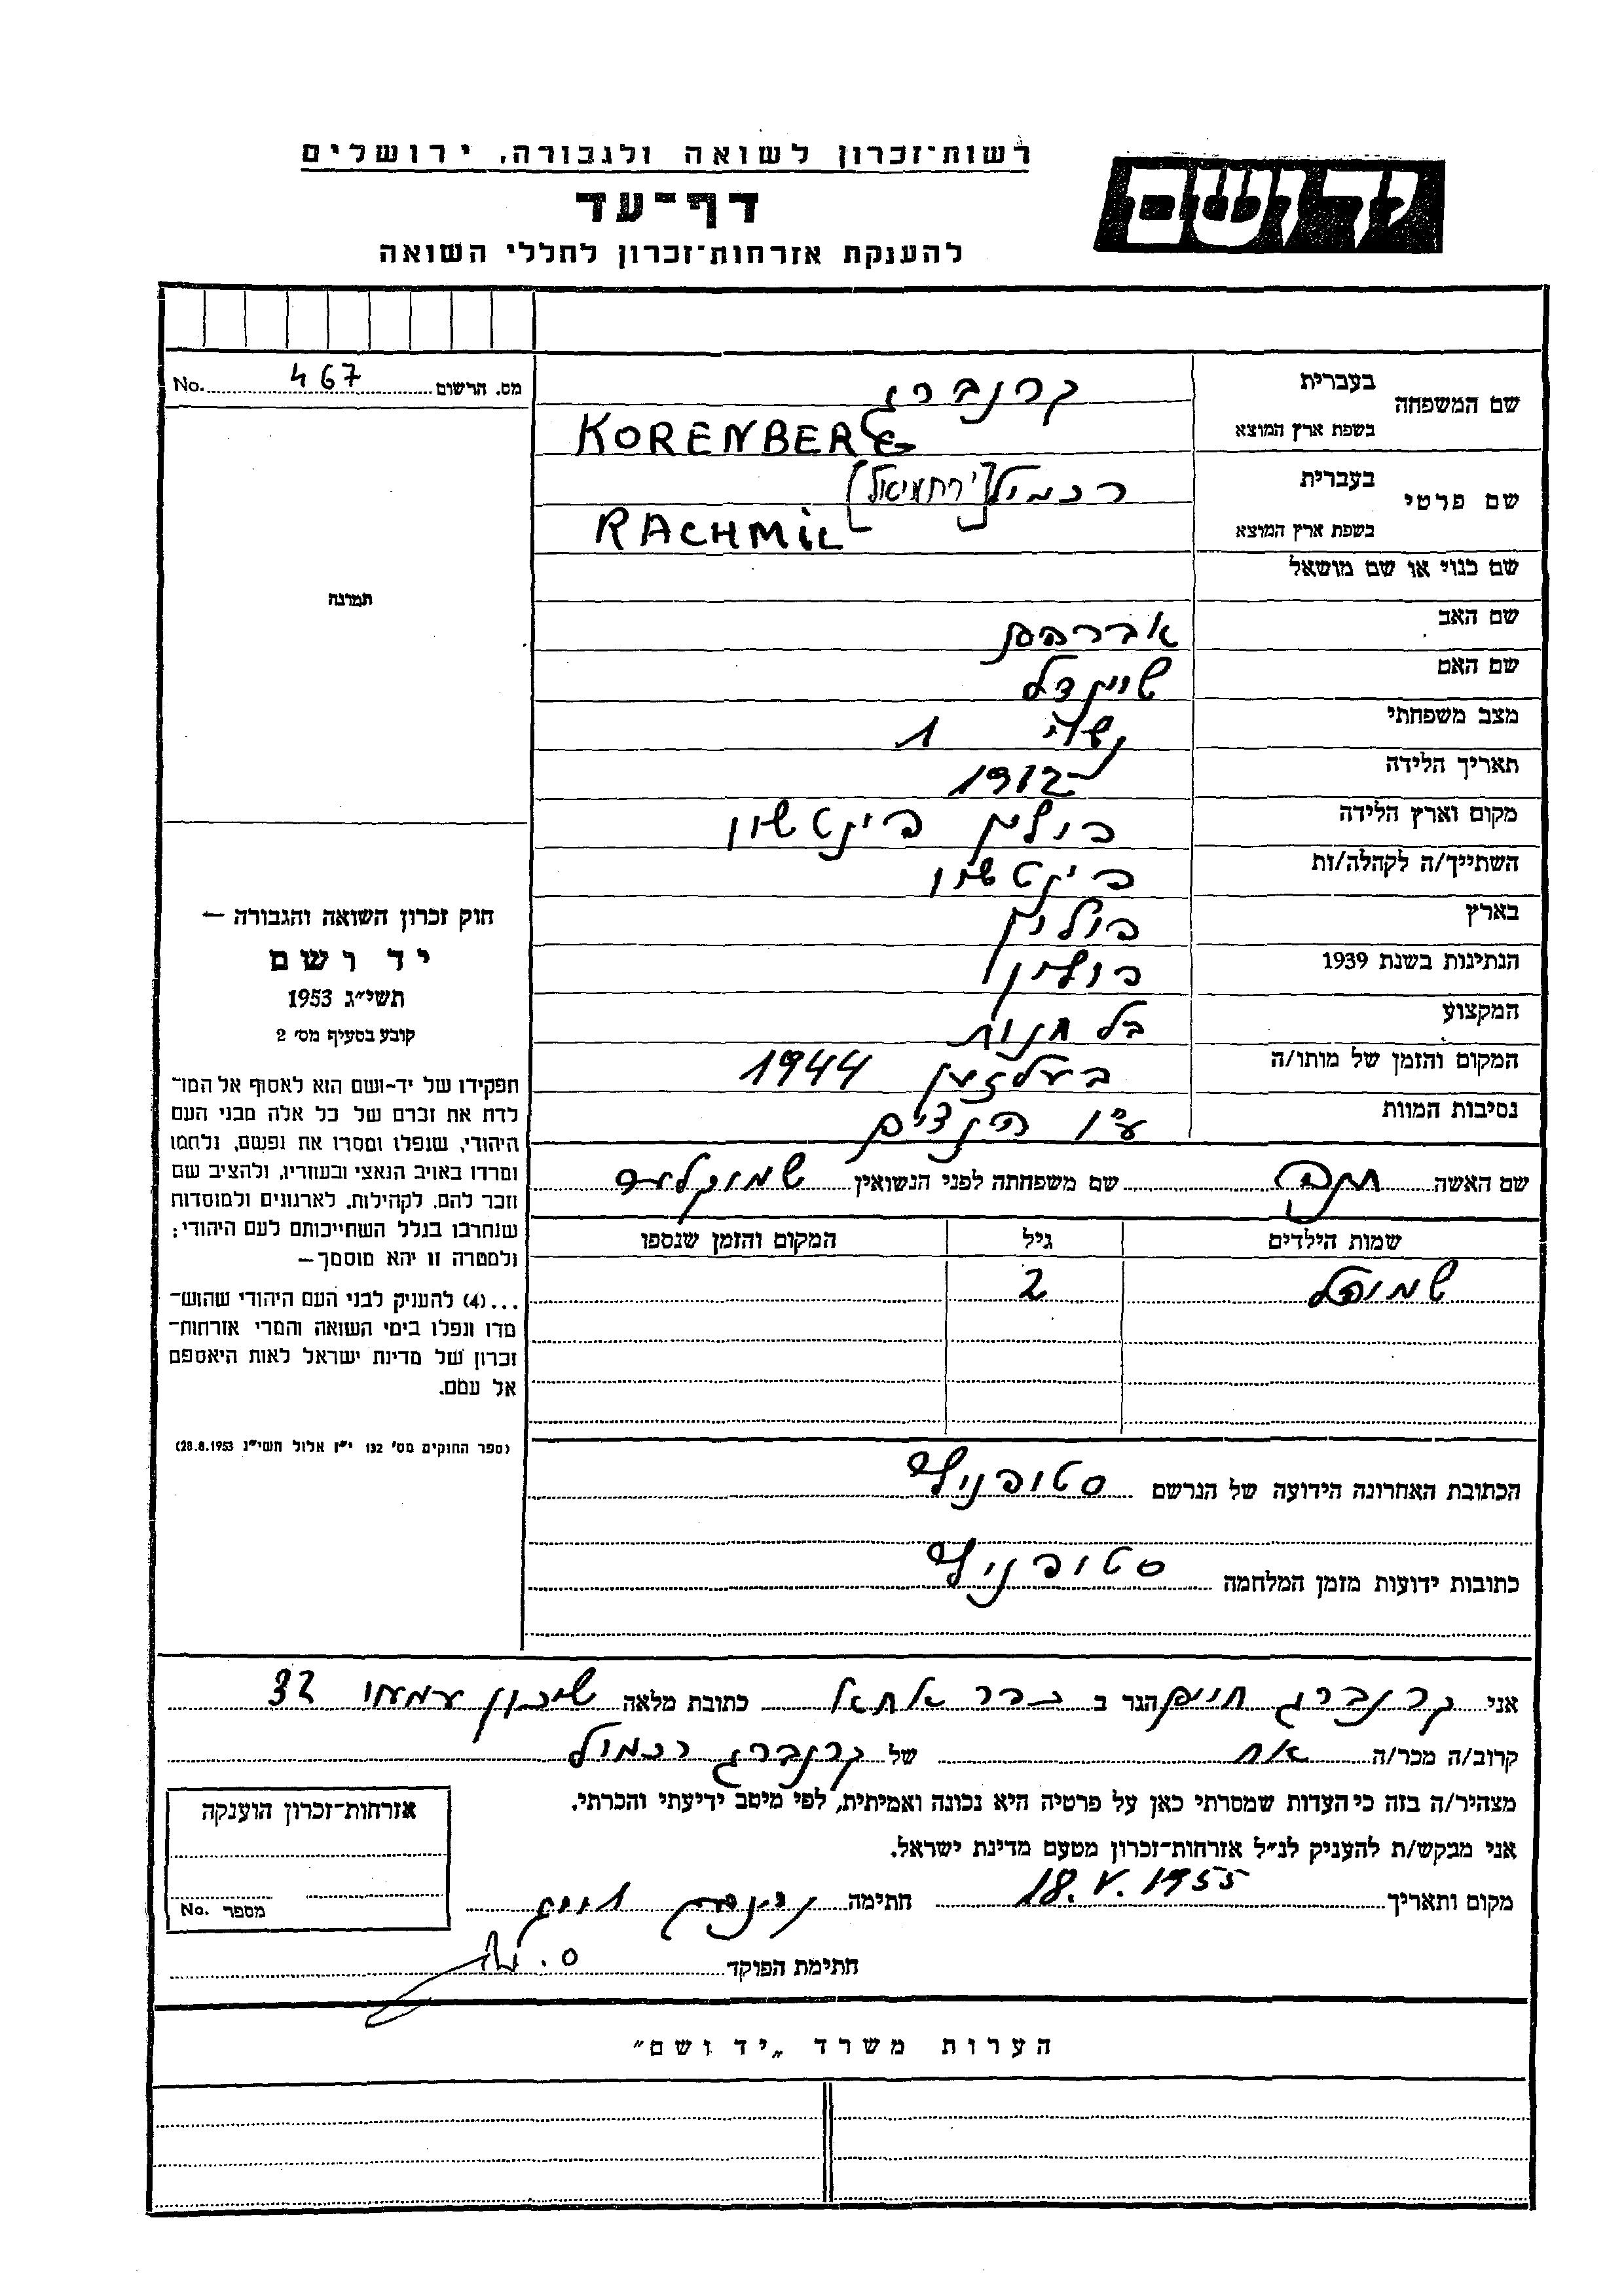 רשות-זכרון לשואה ולגבורה, ירושלים
יד ושם
דף-עד
להענקת אזרחות-זכרון לחללי השואה
מס. הרשום 467 No.
שם המשפחה בעברית קרנברג
בשפת ארץ המוצא KORENBERG
שם פרטי בעברית רכמיל [ירחמיאל]
בשפת ארץ המוצא RACHMIL
שם כנוי או שם מושאל
שם האב אברהם
שם האם שיינדל
מצב משפחתי נשוי 1
תאריך הלידה 1912
מקום וארץ הלידה פולין פינטשוב
השתייך/ה לקהלה/ות פינטשוב
בארץ פולין
הנתינות בשנת 1939 פולין
המקצוע בעל חנות
המקום והזמן של מותו/ה בעלזען 1944
נסיבות המוות ע"י הנצים
תמונה
חוק זכרון השואה והגבורה —
יד ושם
תשי"ג 1953
קובע בסעיף מס' 2
תפקידו של יד-ושם הוא לאסוף אל המו-
לדת את זכרם של כל אלה מבני העם
היהודי, שנפלו ומסרו את נפשם, נלחמו
ומרדו באויב הנאצי ובעוזריו, ולהציב שם
וזכר להם, לקהילות, לארגונים ולמוסדות
שנחרבו בגלל השתייכותם לעם היהודי;
ולמטרה זו יהא מוסמך —
...(4) להעניק לבני העם היהודי שהוש-
מדו ונפלו בימי השואה והמרי אזרחות-
זכרון של מדינת ישראל לאות היאספם
אל עמם.
(ספר החוקים מס' 132 י"ז אלול תשי"ג 28.8.1953)
שם האשה שם משפחתה לפני הנשואין
שמות הילדים גיל המקום והזמן שנספו
שמואל 2
הכתובת האחרונה הידועה של הנרשם סטופניצה
כתובות ידועות מזמן המלחמה סטופניצה
אני קרנברג חיים הגר ב כתובת מלאה שיכון עממי 32
קרוב/ה מכר/ה אח של קרנברג רכמיל
מצהיר/ה בזה כי העדות שמסרתי כאן על פרטיה היא נכונה ואמיתית, לפי מיטב ידיעתי והכרתי.
אני מבקש/ת להעניק לנ"ל אזרחות-זכרון מטעם מדינת ישראל.
מקום ותאריך 18.V.1955 חתימה
חתימת הפוקד
אזרחות-זכרון הוענקה
מספר No.
הערות משרד „יד ושם"